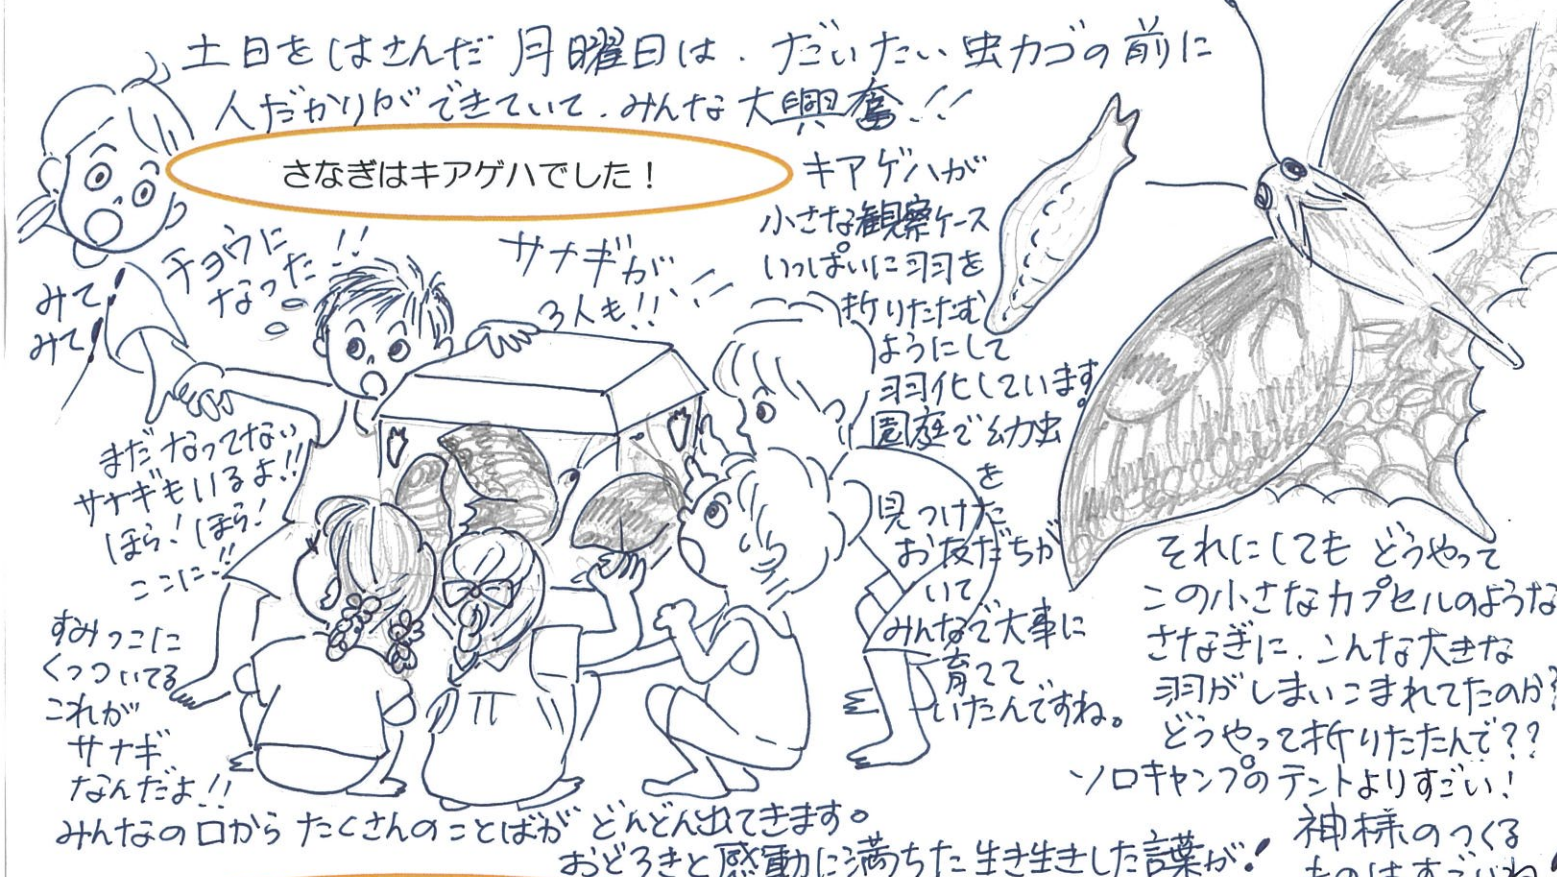 土日をはさんだ月曜日は、だいたい虫カゴの前に
人だかりができていて、みんな大興奮!!
さなぎはキアゲハでした！
みて!
みて!
チョウに
なった!!
サナギが
3人も!!
キアゲハが
小さな観察ケース
いっぱいに羽を
折りたたむ
ようにして
羽化しています。
園庭で幼虫
を
見つけた
お友だちが
いて
みんなで大事に
育てて
いたんですね。
まだなってない
サナギもいるよ!!
ほら!ほら!
ここに!!
すみっこに
くっついてる
これが
サナギ
なんだよ!!
それにしてもどうやって
この小さなカプセルのような
さなぎに、こんな大きな
羽がしまいこまれてたのか?
どうやって折りたたんで??
ソロキャンプのテントよりすごい!
神様のつくる
ものはすごいね!
みんなの口からたくさんのことばがどんどん出てきます。
おどろきと感動に満ちた生き生きした言葉が!